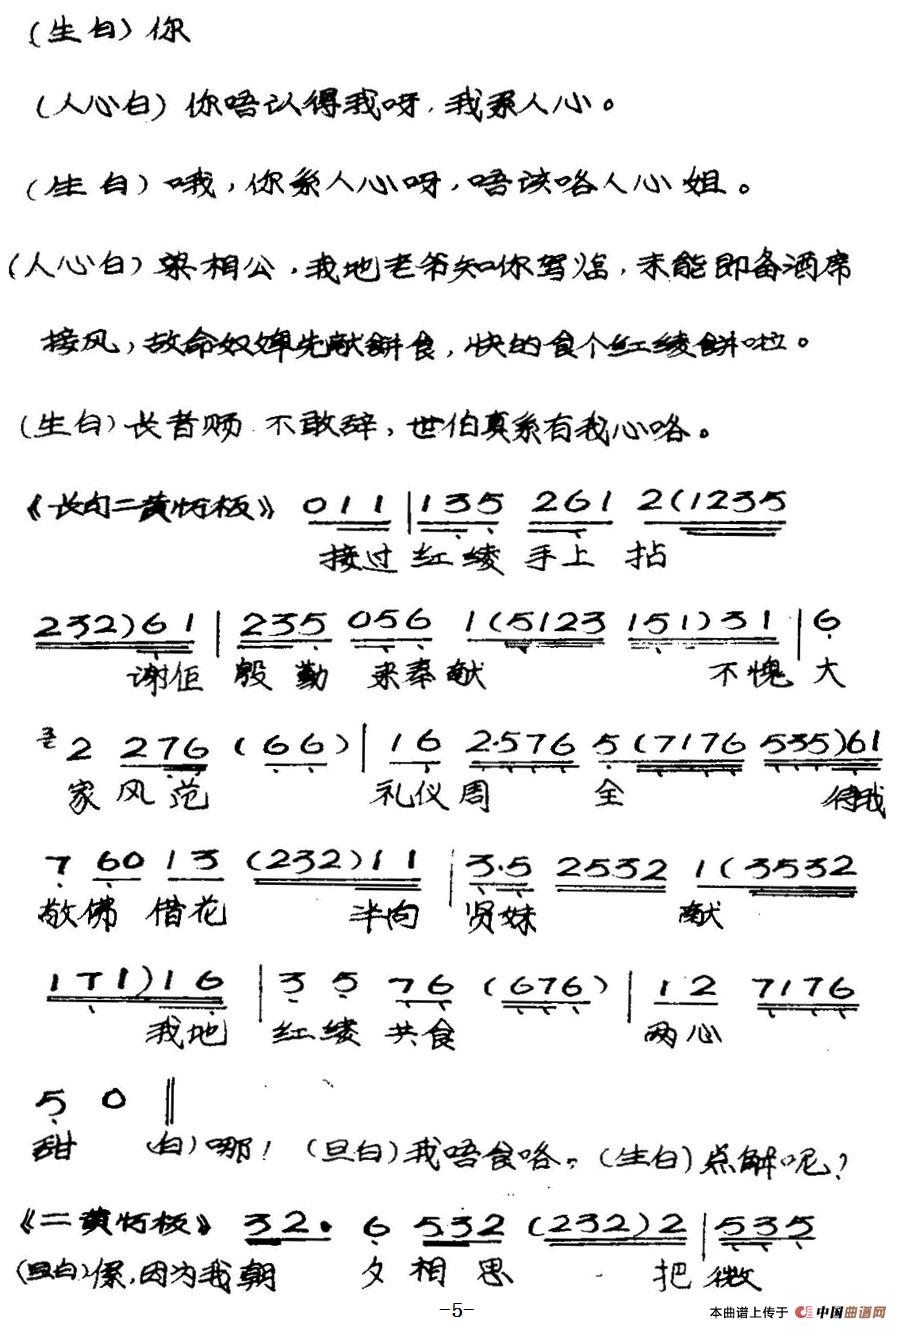 (生白)你
(人心白)你唔认得我呀,我系人心。
(生白)哦,你系人心呀,唔该咯人心姐。
(人心白)梁相公,我地老爷知你驾临,未能即备酒席
接风,故命奴婢先献饼食,快的食个红绫饼啦。
(生白)长者赐 不敢辞,世伯真系有我心咯。
《长句二黄板》 0 1 1 | 1 3 5 2 6 1 2 (1 2 3 5
接过 红 绫 手上 拈
2 3 2) 6 1 | 2 3 5 0 5 6 1 (5 1 2 3 1 5 1) 3 1 | 6
谢佢 殷 勤 来奉献 不愧 大
3 2 2 7 6 (6 6) | 1 6 2·5 7 6 5 (7 1 7 6 5 3 5) 6 1
家 风 范 礼仪 周 全 待我
7 6 0 1 3 (2 3 2) 1 1 | 3·5 2 5 3 2 1 (3 5 3 2
敬佛 借花 半向 贤妹 献
1 7 1) 1 6 | 3 5 7 6 (6 7 6) | 1 2 7 1 7 6
我地 红绫 共食 两心
5 0 ‖
甜 (白)哪! (旦白)我唔食咯。(生白)点解呢?
《二黄板》 3 2 · 6 5 3 2 (2 3 2) 2 | 5 3 5
(旦白)系,因为我朝 夕 相 思 把 微
-5-
本曲谱上传于 中国曲谱网